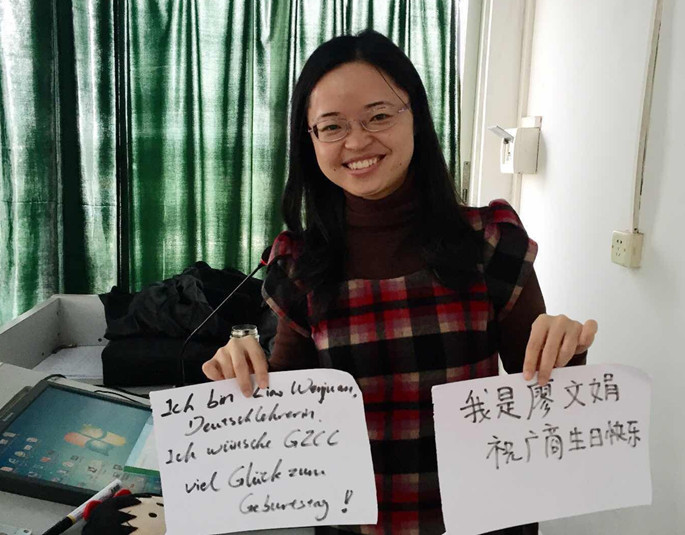 Ich bin Liao Wenjuan,
Deutschlehrerin.
Ich wünsche GZCC
viel Glück zum
Geburtstag!
我是廖文娟
祝广商生日快乐